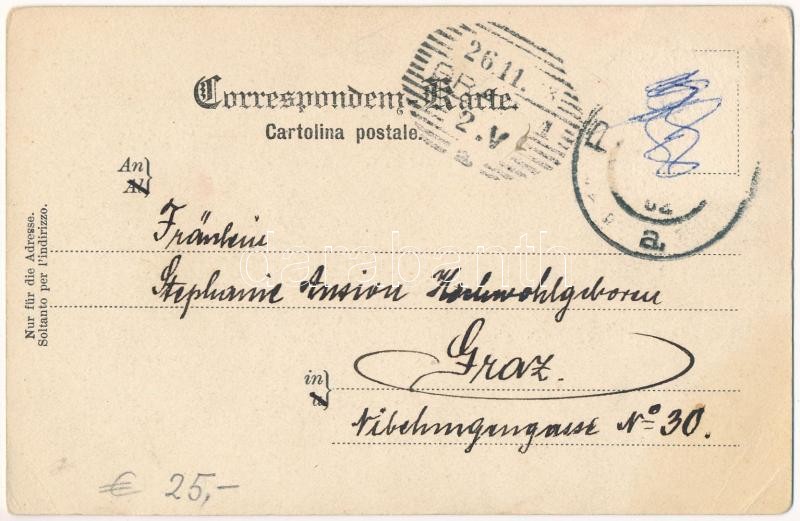 Correspondenz-Karte.
Cartolina postale.
26.11.
GRA
2. V
a
02
a
An
Al
Fräulein
Stephanie Ansion Hochwohlgeboren
in
a
Graz.
Nibelungengasse No 30.
Nur für die Adresse.
Soltanto per l'indirizzo.
€ 25,-
darabanth